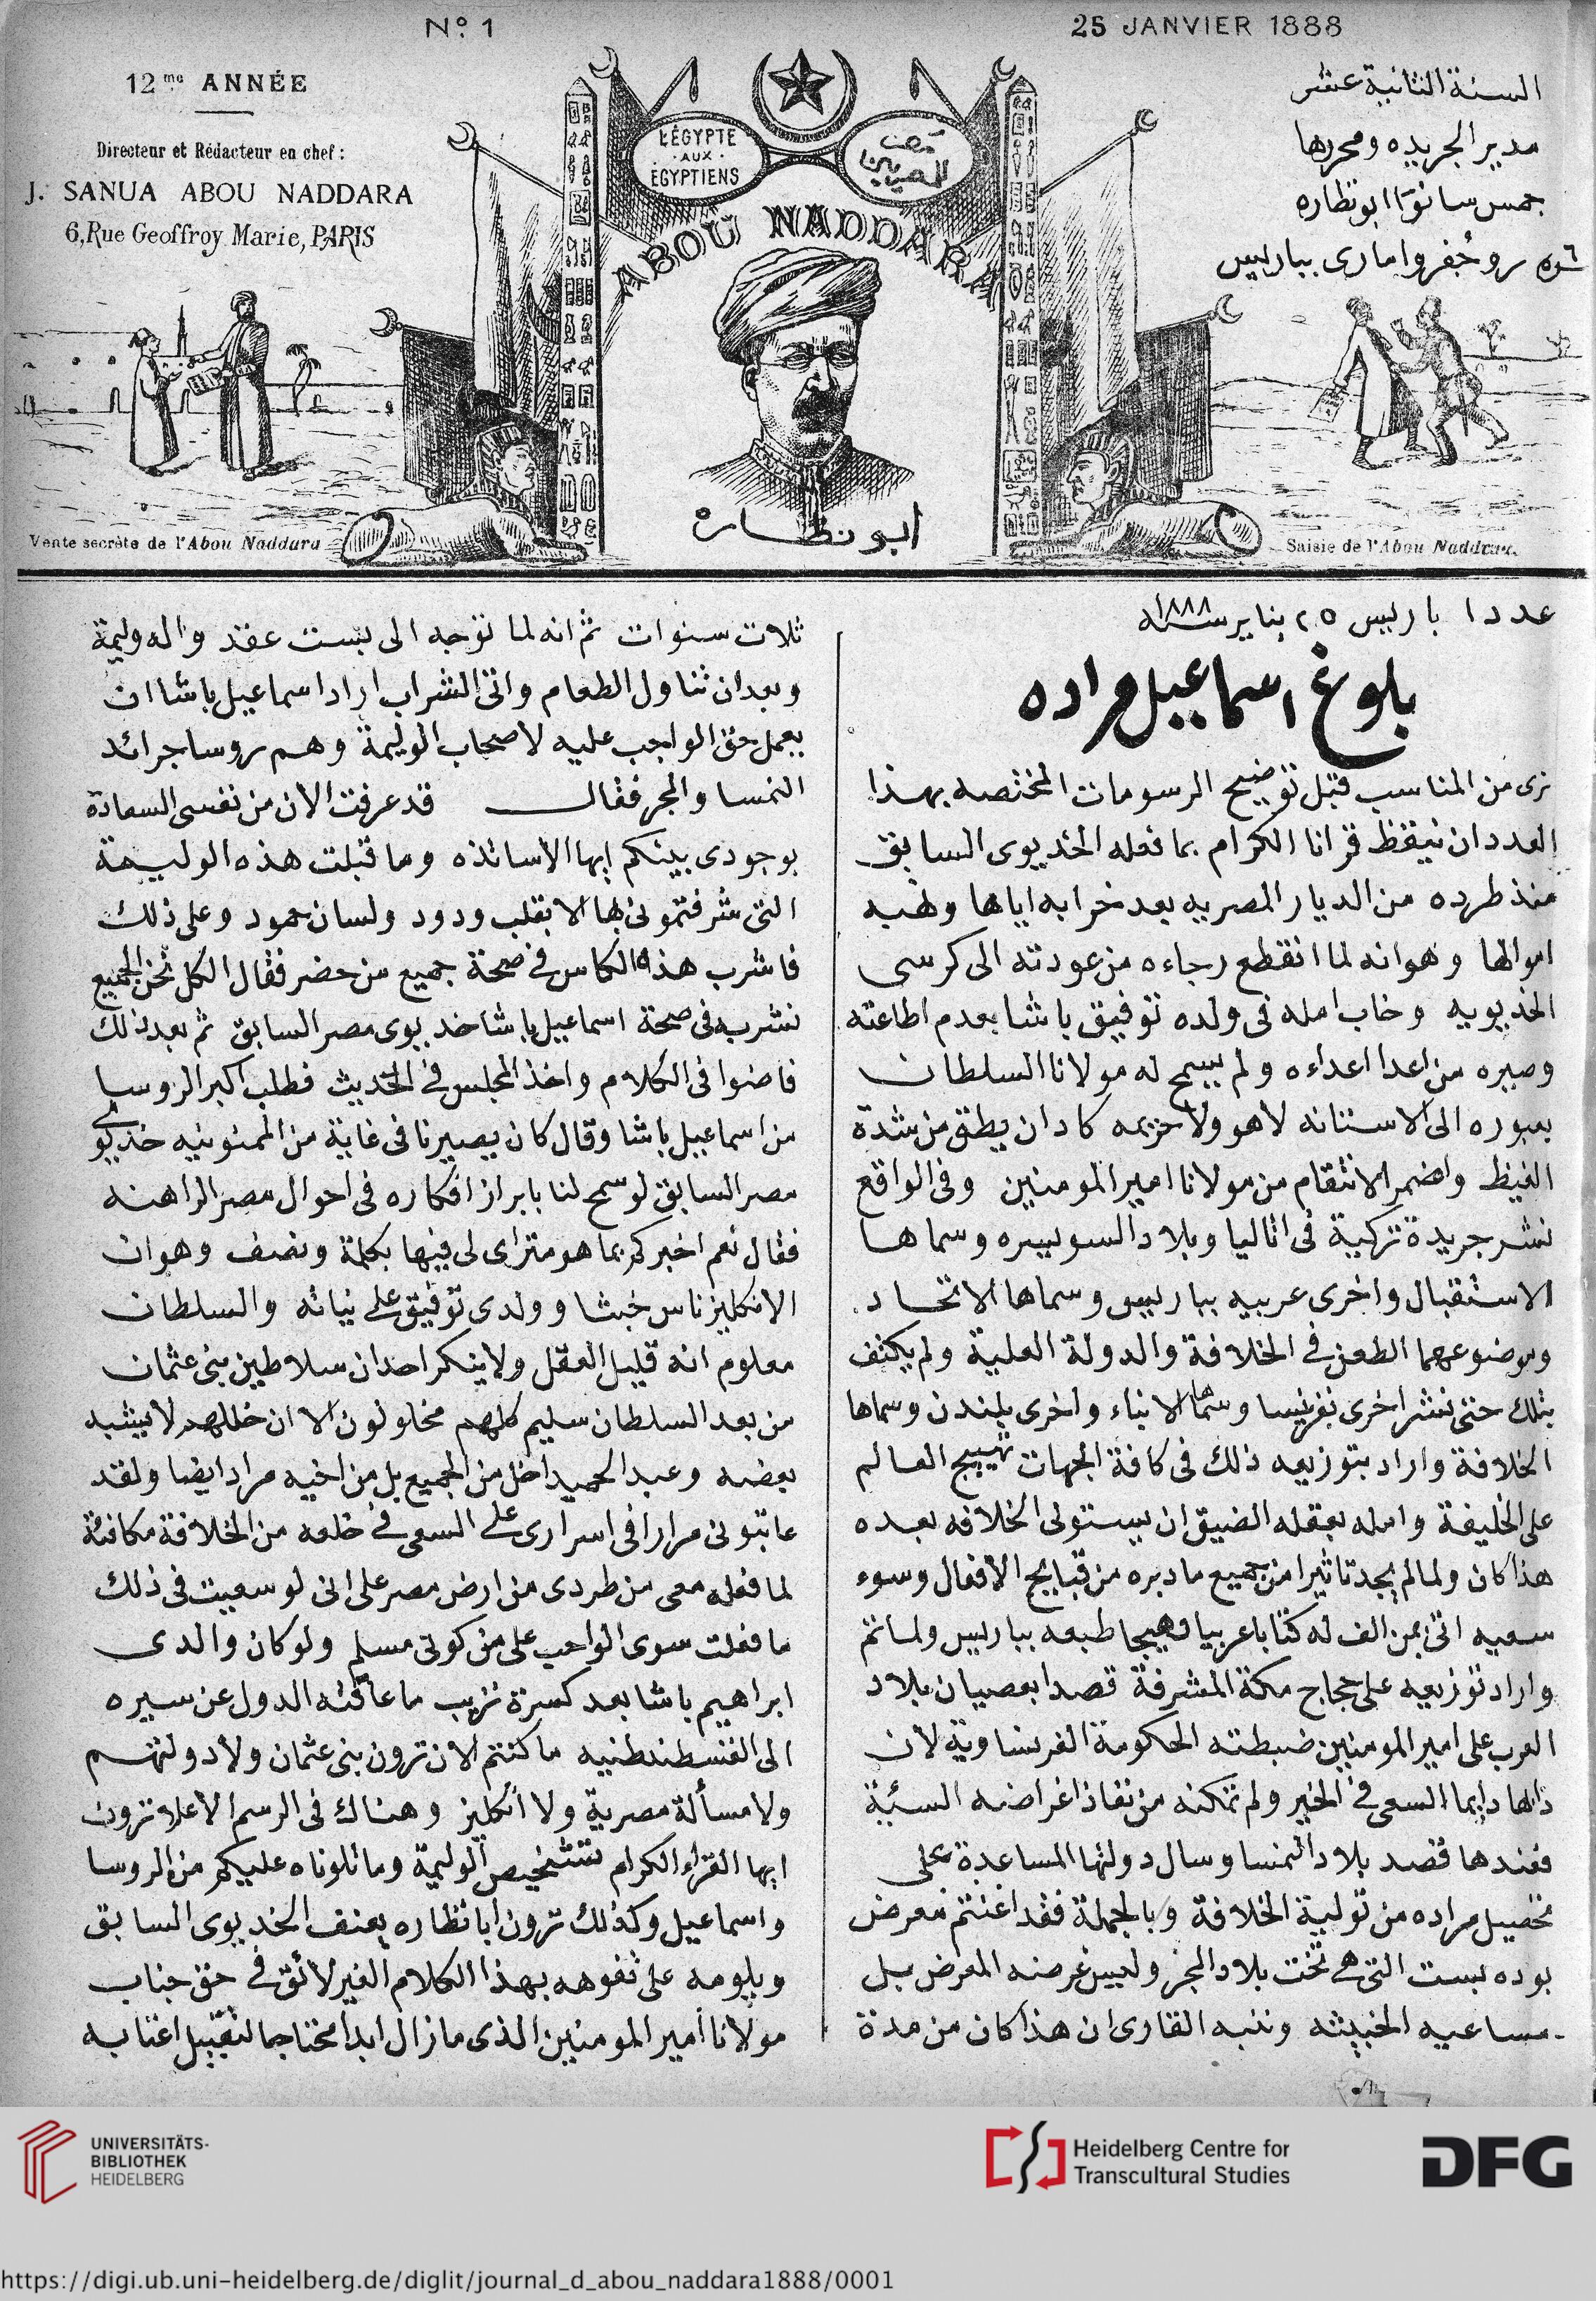 Nº 1
25 JANVIER 1888
12me ANNÉE
Directeur et Rédacteur en chef :
J. SANUA ABOU NADDARA
6, Rue Geoffroy Marie, PARIS
السنة الثانية عشر
مدير الجريده ومحررها
جمس سانوا ابو نظاره
نمره ٦ رو جفروا مارى بباريس
L'ÉGYPTE
AUX
ÉGYPTIENS
مصر
للمصريين
ABOU NADDARA
ابو نظاره
Vente secrète de l'Abou Naddara
Saisie de l'Abou Naddara
عدد ١ باريس ٢٥ يناير سنة ١٨٨٨
بلوغ اسماعيل مراده
نرى من المناسب قبل توضيح الرسومات المختصه بهذا
العدد ان نيقظ قرانا الكرام بما فعله الخديوى السابق
منذ طرده من الديار المصريه بعد خرابه اياها ونهبه
اموالها وهو انه لما انقطع رجاءه من عودته الى كرسى
الخديويه وخاب امله فى ولده توفيق باشا بعدم اطاعته
وصيره من اعدا اعداءه ولم يسمح له مولانا السلطان
بعبوره الى الاستانه لاهو ولا حريمه كاد ان يطق من شدة
الغيظ واضمر الانتقام من مولانا امير المومنين وفى الواقع
نشر جريدة تركية فى اتاليا وبلاد السويسره وسماها
الاستقبال واخرى عربيه بباريس وسماها الاتحاد
وموضوعهما الطعن فى الخلافة والدولة العلية ولم يكتف
بتلك حتى نشر اخرى بفرنسا وسماها الانباء واخرى بلندن وسماها
الخلافة واراد بتوزيعه ذلك فى كافة الجهات تهييج العالم
على الخليفة وامله بعقله الضيق ان يستولى الخلافه بعده
هذا كان ولما لم يجد تاثيرا من جميع ما دبره من قبايح الافعال وسوء
سعيه اتى بمن الف له كتابا عربيا وهيجا طبعه بباريس ولما تم
واراد توزيعه على حجاج مكة المشرفة قصدا بعصيان بلاد
العرب على امير المومنين ضبطته الحكومة الفرنساوية لان
دابها دايما السعى فى الخير ولم تمكنه من نفاذ اغراضه السيئة
فعندها قصد بلاد النمسا وسال دولتها المساعدة على
تحصيل مراده من تولية الخلافة وبالجملة فقد اغتنم معرض
بوده بست التى هى تخت بلاد المجر وليس غرضه المعرض بل
مساعيه الخبيثه وننبه القارى ان هذا كان من مدة
ثلاث سنوات ثم انه لما توجه الى بست عقد واله وليمة
وبعد ان تناول الطعام واتى الشراب اراد اسماعيل باشا ان
يعمل حق الواجب عليه لاصحاب الوليمة وهم روسا جرائد
النمسا والمجر فقال قد عرفت الان من نفسى السعادة
بوجودى بينكم ايها الاساتذه وما قبلت هذه الوليمة
التى شرفتمونى بها الا بقلب ودود ولسان حمود وعلى ذلك
فاشرب هذا الكاس فى صحة جميع من حضر فقال الكل نحن الجميع
نشربه فى صحة اسماعيل باشا خديوى مصر السابق ثم بعد ذلك
فاضوا فى الكلام واخذ المجلس فى الحديث فطلب اكبر الروسا
من اسماعيل باشا وقال كان يصيرنا فى غاية من الممنونيه خديوى
مصر السابق لو سمح لنا بابراز افكاره فى احوال مصر الراهنه
فقال نعم اخبركم بما هو متراى لى فيها بكلمة ونصف وهو ان
الانكليز ناس خبثا وولدى توفيق على نياته والسلطان
معلوم انه قليل العقل ولا ينكر احد ان سلاطين بنى عثمان
من بعد السلطان سليم كلهم مخاولون الا ان خللهم لا يشبه
بعضه وعبد الحميد اخل من الجميع بل من اخيه مراد ايضا ولقد
عاتبونى مرارا فى اسرارى على السعى فى خلعه من الخلافة مكافئة
لما فعله معى من طردى من ارض مصر على انى لو سعيت فى ذلك
ما فعلت سوى الواجب على من كونى مسلم ولو كان والدى
ابراهيم باشا بعد كسرة نزيب ما عاقته الدول عن سيره
الى القسطنطنيه ما كنتم الان ترون بنى عثمان ولا دولتهم
ولا مسألة مصرية ولا انكليز وهناك فى الرسم الاعلا ترون
ايها القراء الكرام تشخيص الوليمة وما تلوناه عليكم من الروسا
واسماعيل وكذلك ترون ابا نظاره يعنف الخديوى السابق
ويلومه على تفوهه بهذا الكلام الغير لائق فى حق جناب
مولانا أمير المومنين الذى مازال ابدا محتاجا لتقبيل اعتابه
UNIVERSITÄTS-
BIBLIOTHEK
HEIDELBERG
Heidelberg Centre for
Transcultural Studies
DFG
https://digi.ub.uni-heidelberg.de/diglit/journal_d_abou_naddara1888/0001